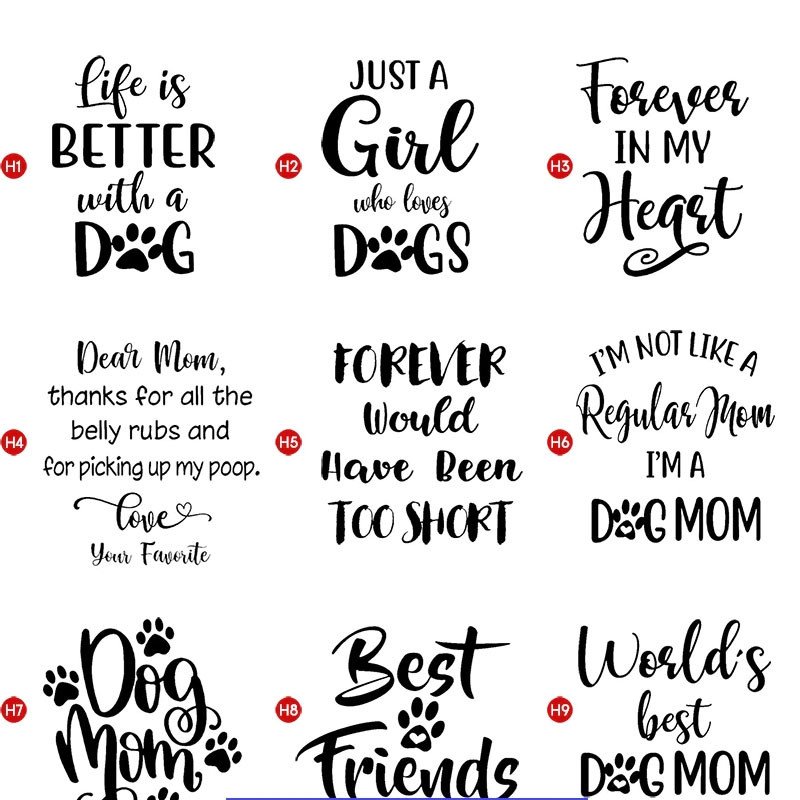 H1
Life is
BETTER
with a
DOG
H2
JUST A
Girl
who loves
DOGS
H3
Forever
IN MY
Heart
H4
Dear Mom,
thanks for all the
belly rubs and
for picking up my poop.
love
Your Favorite
H5
FOREVER
Would
Have Been
TOO SHORT
H6
I'M NOT LIKE A
Regular Mom
I'M A
DOG MOM
H7
Dog
Mom
H8
Best
Friends
H9
World's
best
DOG MOM